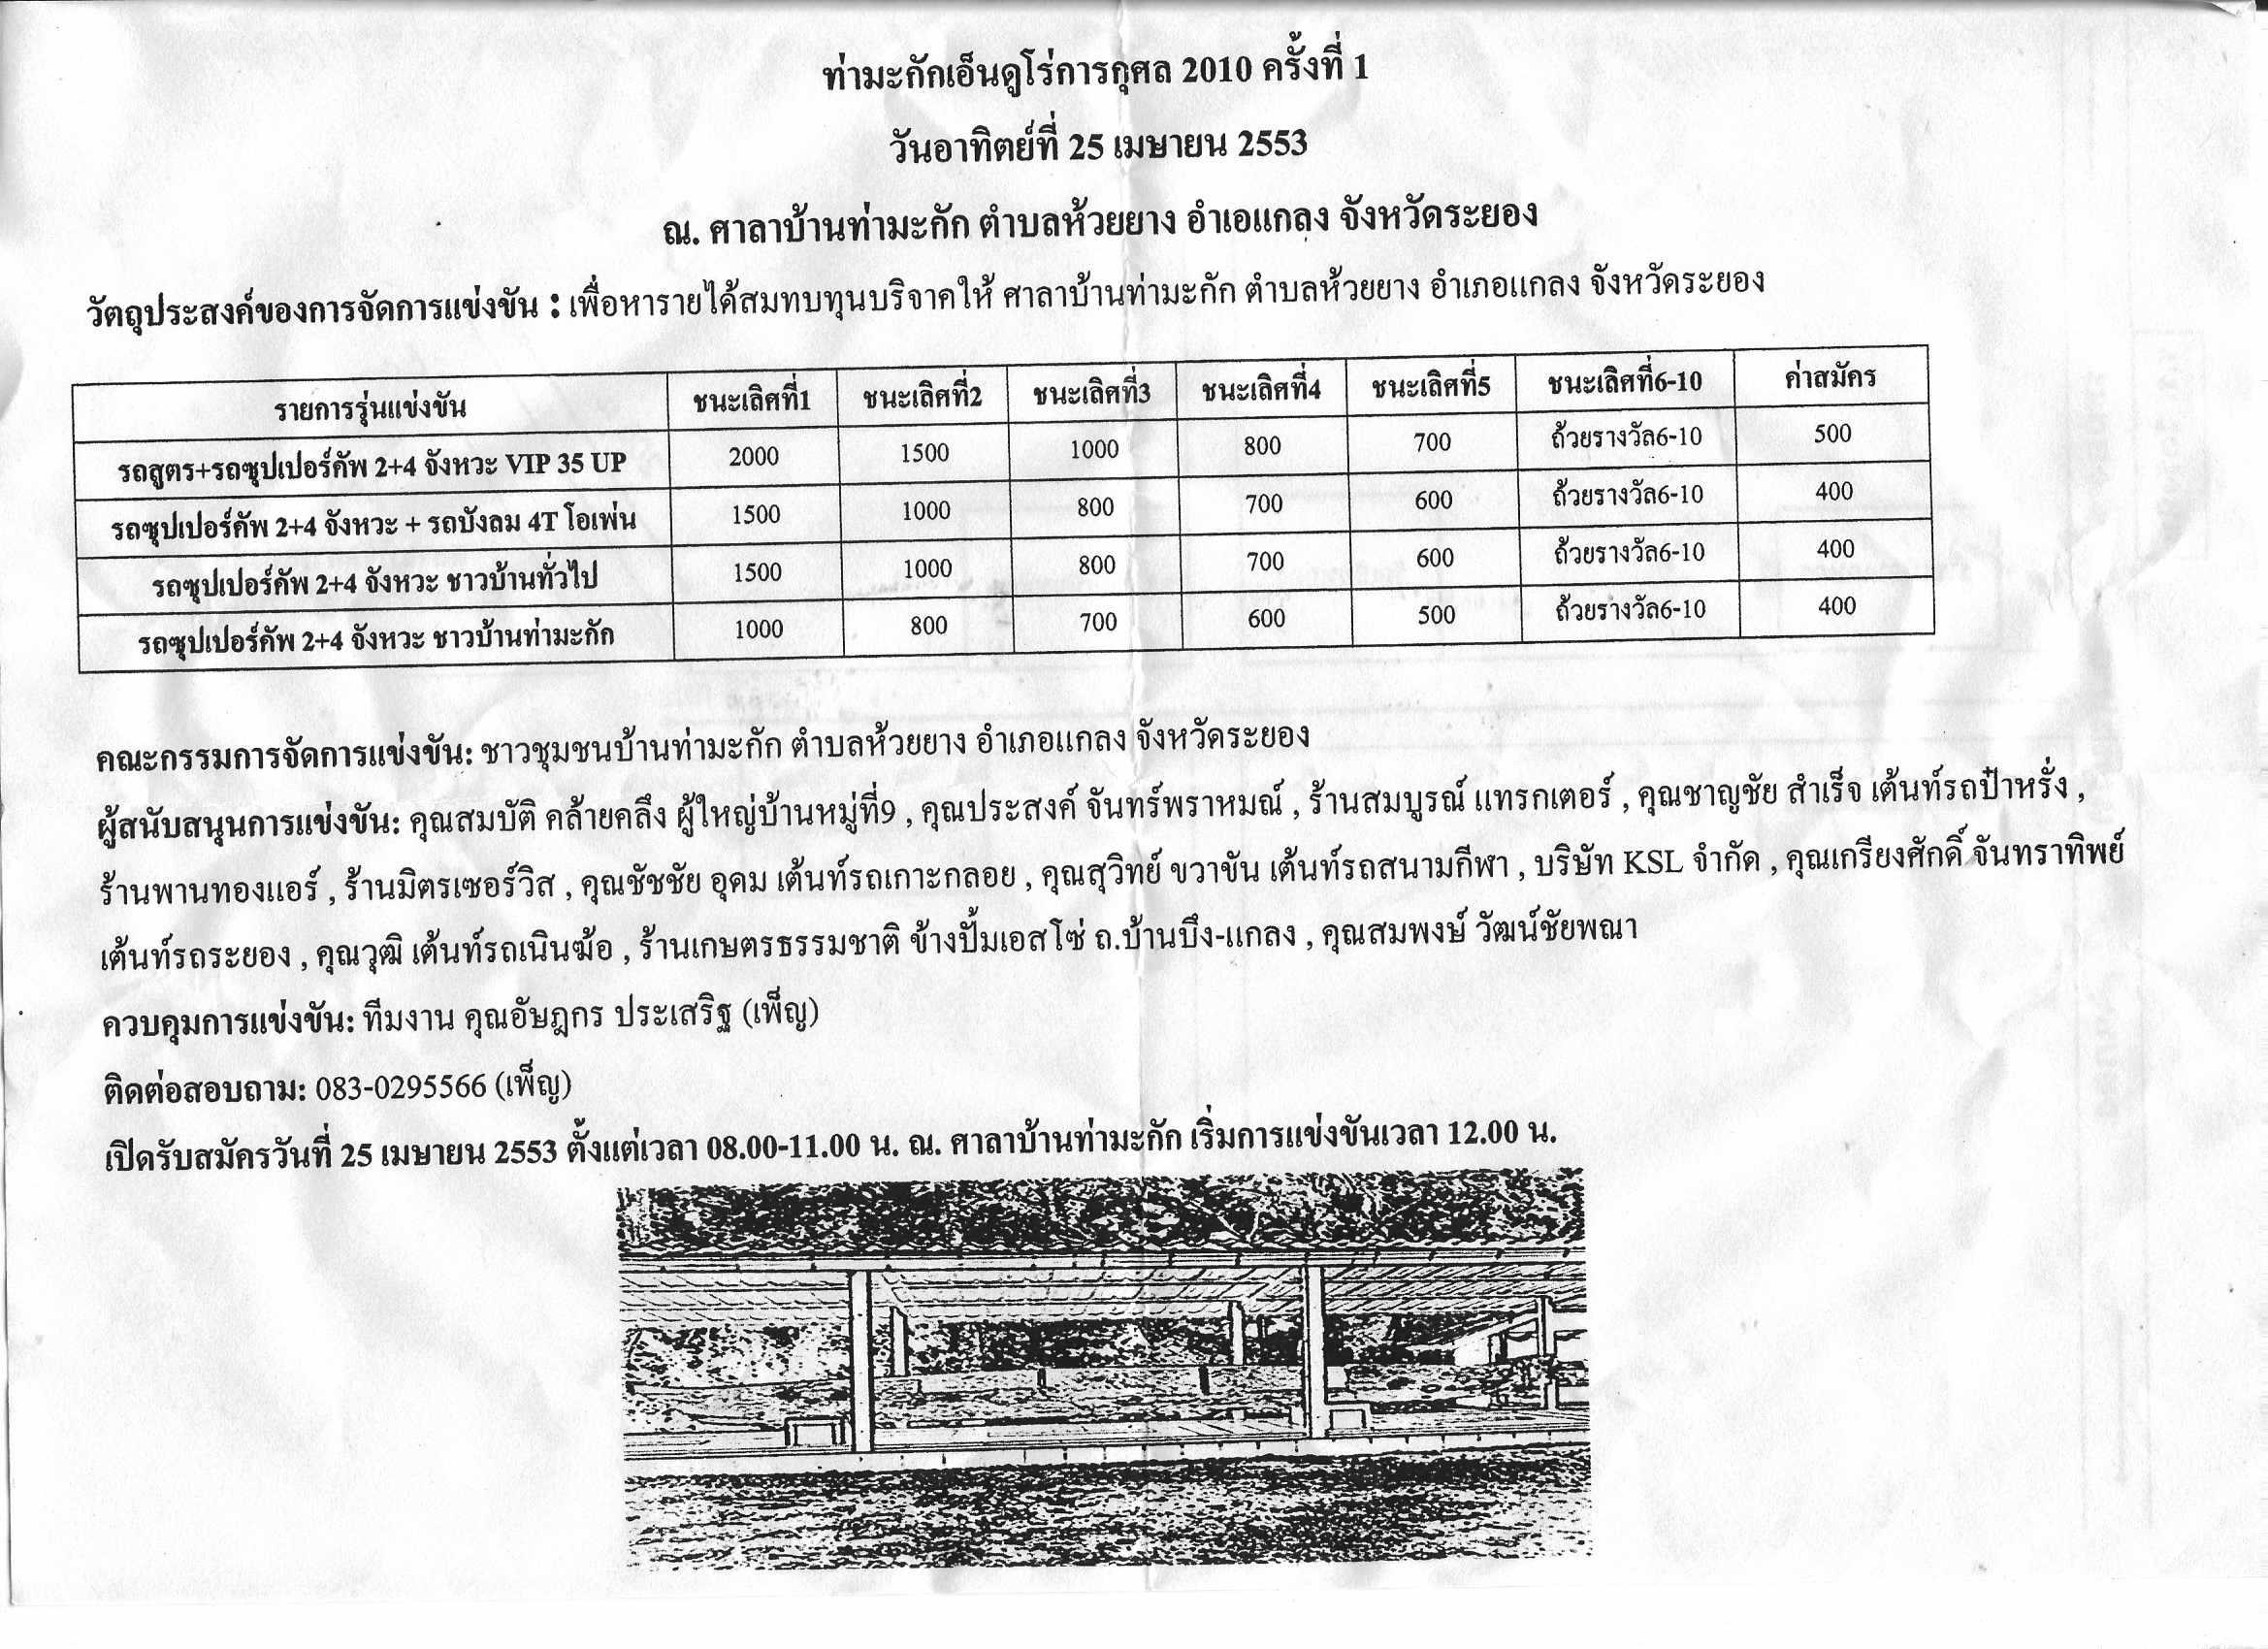 ท่ามะกักเอ็นดูโร่การกุศล 2010 ครั้งที่ 1
วันอาทิตย์ที่ 25 เมษายน 2553
ณ. ศาลาบ้านท่ามะกัก ตำบลห้วยยาง อำเอแกลง จังหวัดระยอง
วัตถุประสงค์ของการจัดการแข่งขัน : เพื่อหารายได้สมทบทุนบริจาคให้ ศาลาบ้านท่ามะกัก ตำบลห้วยยาง อำเภอแกลง จังหวัดระยอง
รายการรุ่นแข่งขัน ชนะเลิศที่1 ชนะเลิศที่2 ชนะเลิศที่3 ชนะเลิศที่4 ชนะเลิศที่5 ชนะเลิศที่6-10 ค่าสมัคร
รถสูตร+รถซุปเปอร์คัพ 2+4 จังหวะ VIP 35 UP 2000 1500 1000 800 700 ถ้วยรางวัล6-10 500
รถซุปเปอร์คัพ 2+4 จังหวะ + รถบังลม 4T โอเพ่น 1500 1000 800 700 600 ถ้วยรางวัล6-10 400
รถซุปเปอร์คัพ 2+4 จังหวะ ชาวบ้านทั่วไป 1500 1000 800 700 600 ถ้วยรางวัล6-10 400
รถซุปเปอร์คัพ 2+4 จังหวะ ชาวบ้านท่ามะกัก 1000 800 700 600 500 ถ้วยรางวัล6-10 400
คณะกรรมการจัดการแข่งขัน: ชาวชุมชนบ้านท่ามะกัก ตำบลห้วยยาง อำเภอแกลง จังหวัดระยอง
ผู้สนับสนุนการแข่งขัน: คุณสมบัติ คล้ายคลึง ผู้ใหญ่บ้านหมู่ที่9 , คุณประสงค์ จันทร์พราหมณ์ , ร้านสมบูรณ์ แทรกเตอร์ , คุณชาญชัย สำเร็จ เต้นท์รถป๋าหรั่ง ,
ร้านพานทองแอร์ , ร้านมิตรเซอร์วิส , คุณชัชชัย อุดม เต้นท์รถเกาะกลอย , คุณสุวิทย์ ขวาขัน เต้นท์รถสนามกีฬา , บริษัท KSL จำกัด , คุณเกรียงศักดิ์ จันทราทิพย์
เต้นท์รถระยอง , คุณวุฒิ เต้นท์รถเนินฆ้อ , ร้านเกษตรธรรมชาติ ข้างปั้มเอสโซ่ ถ.บ้านบึง-แกลง , คุณสมพงษ์ วัฒน์ชัยพณา
ควบคุมการแข่งขัน: ทีมงาน คุณอัษฎกร ประเสริฐ (เพ็ญ)
ติดต่อสอบถาม: 083-0295566 (เพ็ญ)
เปิดรับสมัครวันที่ 25 เมษายน 2553 ตั้งแต่เวลา 08.00-11.00 น. ณ. ศาลาบ้านท่ามะกัก เริ่มการแข่งขันเวลา 12.00 น.